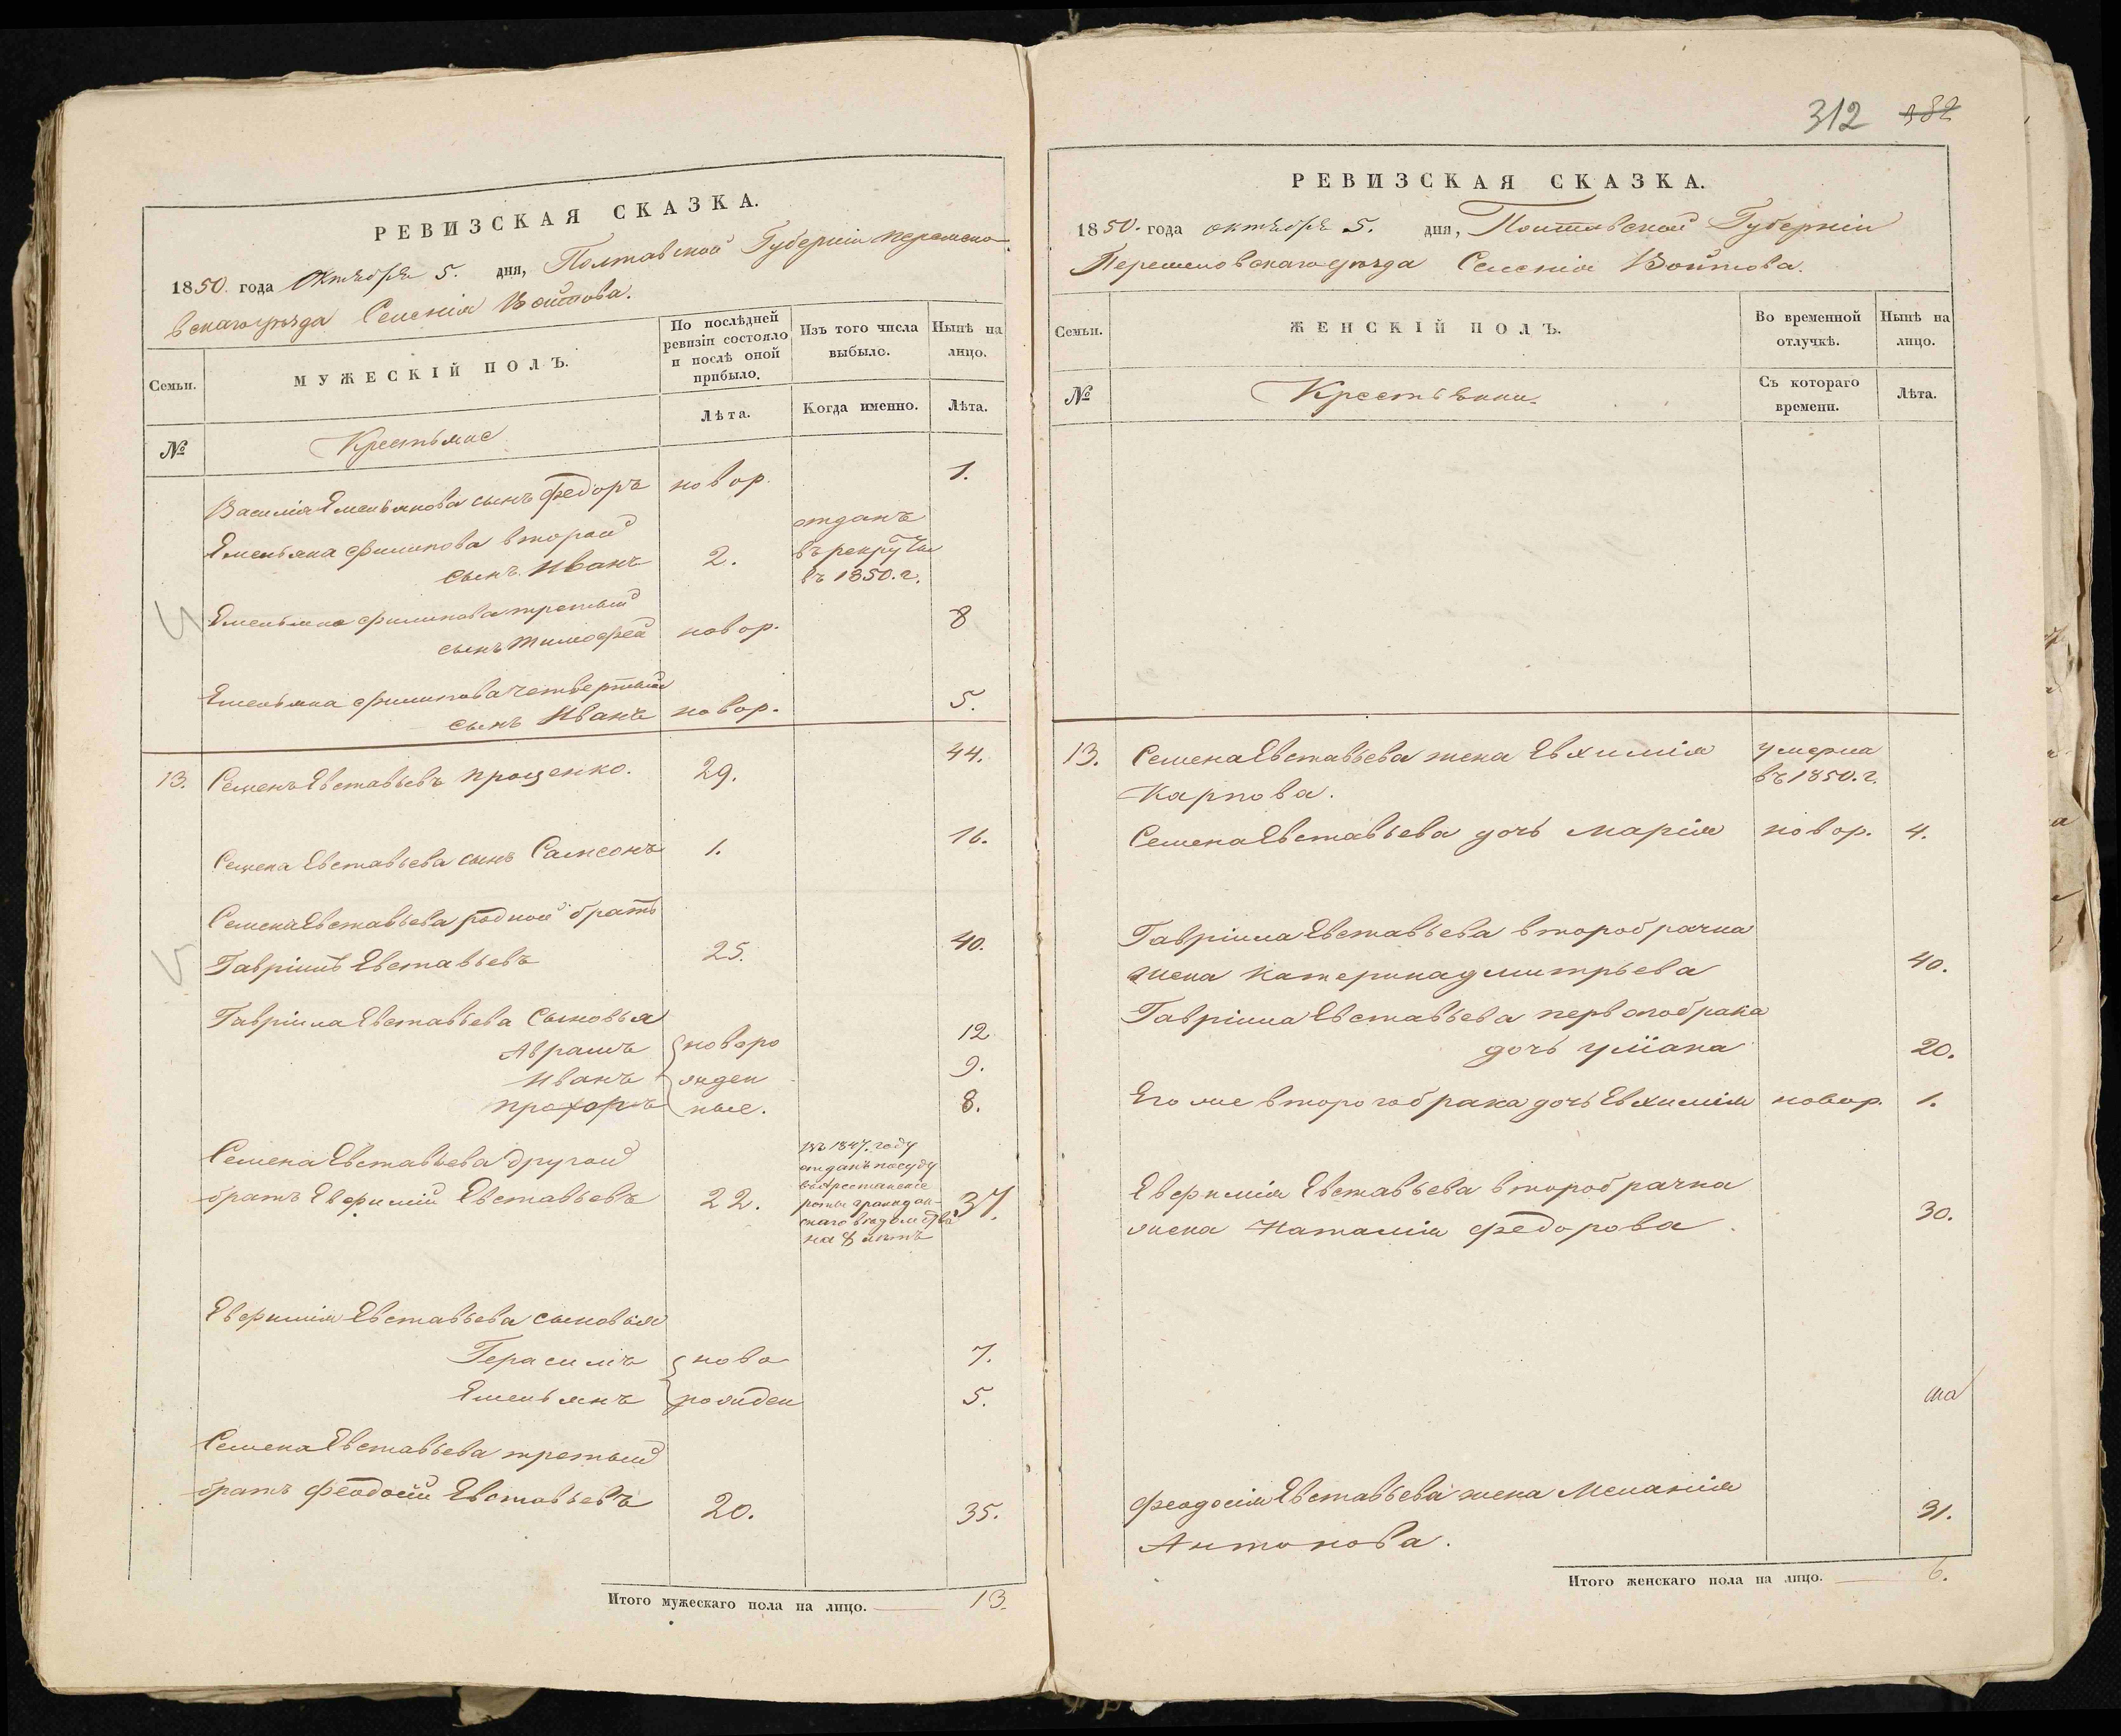 РЕВИЗСКАЯ СКАЗКА.
1850. года Октября 5. дня, Полтавской Губерніи Переясло
вскаго уѣзда Селенія Войтова.
Семьи.
МУЖЕСКІЙ ПОЛЪ.
По послѣдней ревизіи состояло и послѣ оной прибыло.
Изъ того числа выбыло.
Нынѣ на лицо.
№
Крестьяне
Лѣта.
Когда именно.
Лѣта.
Василія Емельянова сынъ Федоръ новор. 1.
Емельяна Филипова второй
сынъ Иванъ 2. отданъ
въ рекруты
въ 1850. г.
Емельяна Филипова третьий
сынъ Тимофей новор. 8
Емельяна Филипова четвертый
сынъ Иванъ новор. 5.
13. Семенъ Евставьевъ Проценко. 29. 44.
Семена Евставьева сынъ Самсонъ 1. 16.
Семена Евставьева родной братъ
Гавріилъ Евставьевъ 25. 40.
Гавріила Евставьева Сыновья
Авраамъ новоро 12
Иванъ жден 9.
Прохоръ ные. 8.
Семена Евставьева другой
братъ Евфимій Евставьевъ 22. 37.
въ 1847. году
отданъ по суду
въ Арестанские
роты граждан-
скаго вѣдомства
на 8 лѣтъ
Евфимія Евставьева сыновья
Герасимъ ново 7.
Емельянъ рожден 5.
Семена Евставьева третьий
братъ Феодосій Евставьевъ 20. 35.
Итого мужескаго пола на лицо. 13.
312 382
РЕВИЗСКАЯ СКАЗКА.
1850. года октября 5. дня, Полтавской Губерніи
Переясловскаго уѣзда Селенія Войтова.
Семьи.
ЖЕНСКІЙ ПОЛЪ.
Во временной отлучкѣ.
Нынѣ на лицо.
№
Крестьянки.
Съ котораго времени.
Лѣта.
13. Семена Евставьева жена Евхимія умерла
Карпова. въ 1850. г.
Семена Евставьева дочь Марія новор. 4.
Гавріила Евставьева второбрачна
жена Катерина Дмитрьева 40.
Гавріила Евставьева первогобрака
дочь Уліана 20.
Его же второгобрака дочь Евхимія новор. 1.
Евфимія Евставьева второбрачна
жена Наталія Федорова 30.
Феодосія Евставьева жена Меланія
Антонова. 31.
Итого женскаго пола на лицо. 6.